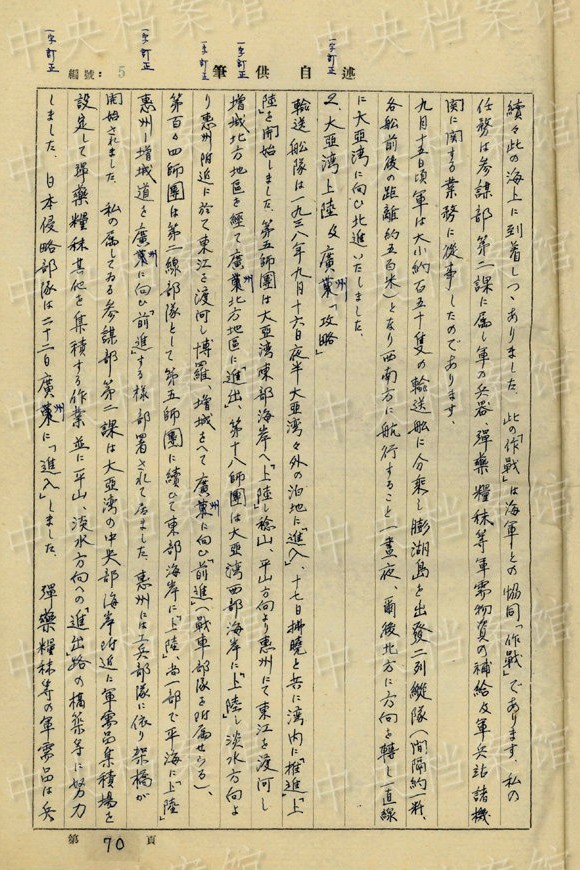 中央档案馆
一字訂正
一字訂正
一字訂正
一字訂正
一字訂正
編號：5
筆供自述
續々此の海上に到着しつゝありました。此の「作戰」は海軍との協同「作戰」であります。私の
任務は参謀部第二課に属し軍の兵器、彈藥、糧秣等軍需物資の補給及軍兵站諸機
関に関する業務に從事したのであります。
九月十五日頃軍は大小約百五十隻の輸送船に分乘し膨湖島を出發二列縱隊（间隔約一粁、
各船前後の距離約五百米）となり西南方に航行すること一晝夜、爾後北方に方向を轉し一直線
に大亞湾に向ひ北進いたしました。
2、大亞湾上陸及廣州「攻略」
輸送船隊は一九三八年九月十六日夜半大亞湾々外の泊地に「進入」、十七日拂曉と共に湾内に「推進」「上
陸」を開始しました。第五師團は大亞湾東部海岸へ「上陸」し稔山、平山方向より惠州にて東江を渡河し
増城北方地區を經て廣州北方地區に「進出」、第十八師團は大亞湾西部海岸に「上陸」し淡水方向よ
り惠州附近に於て東江を渡河し博羅、増城をへて廣州に向ひ「前進」（戰車部隊を附属せらる）、
第百〇四師團は第二線部隊として第五師團に續ひて東部海岸に「上陸」尚一部で平海に「上陸」
惠州―増城道を廣州に向ひ「前進」する様部署されて居ました。惠州には工兵部隊に依り架橋が
開始されました。私の属してゐる参謀部第二課は大亞湾の中央部海岸附近に軍需品集積場を
設定して彈藥糧秣其他を集積する作業並に平山、淡水方向への「進出」路の構築等に努力
しました。日本侵略部隊は二十二日廣州に「進入」しました。彈藥糧秣等の軍需品は兵
第70頁